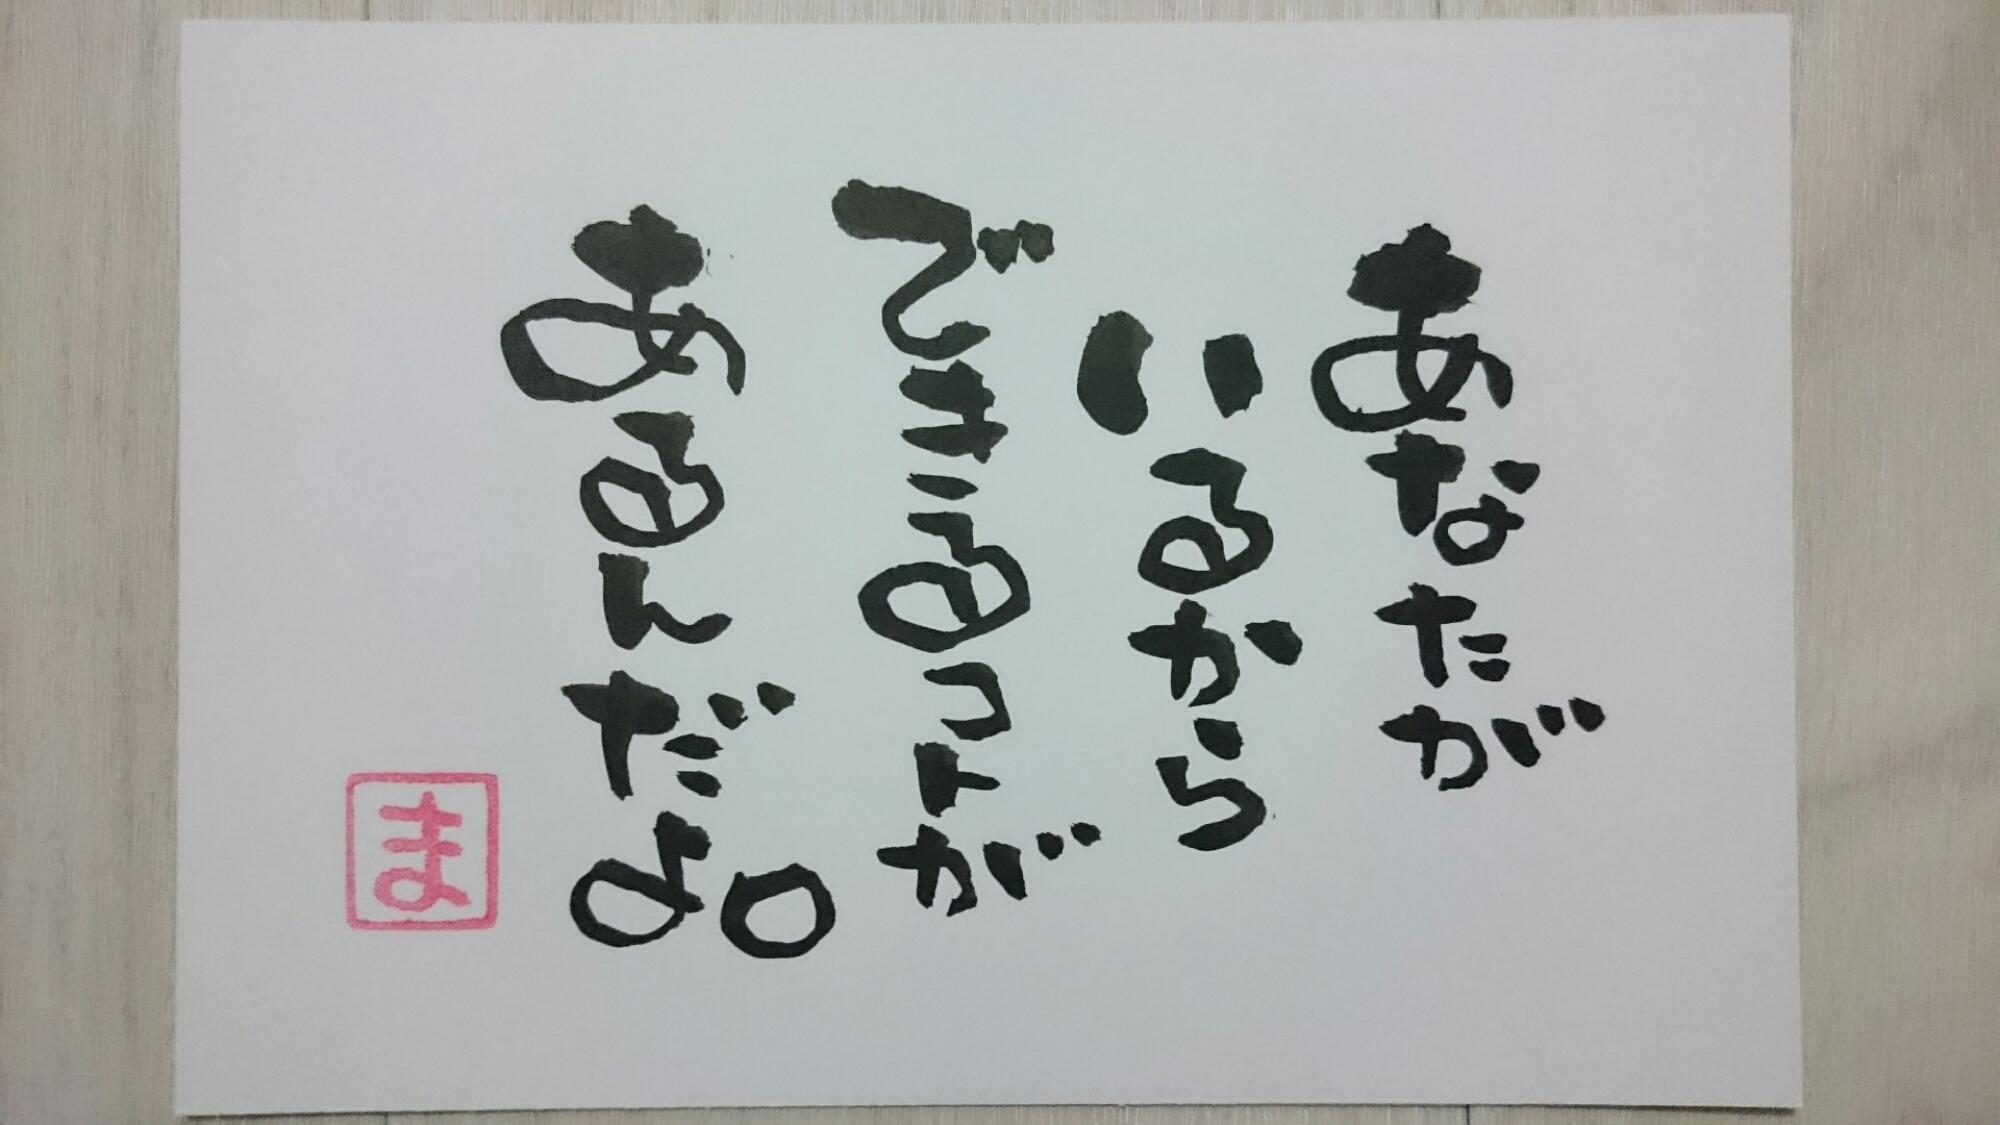 あなたが
いるから
できるコトが
あるんだよ。
ま